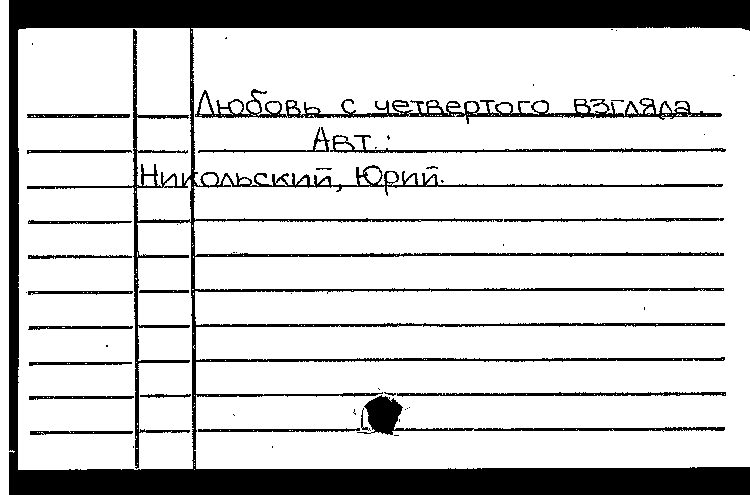 Любовь с четвертого взгляда.
Авт.:
Никольский, Юрий.